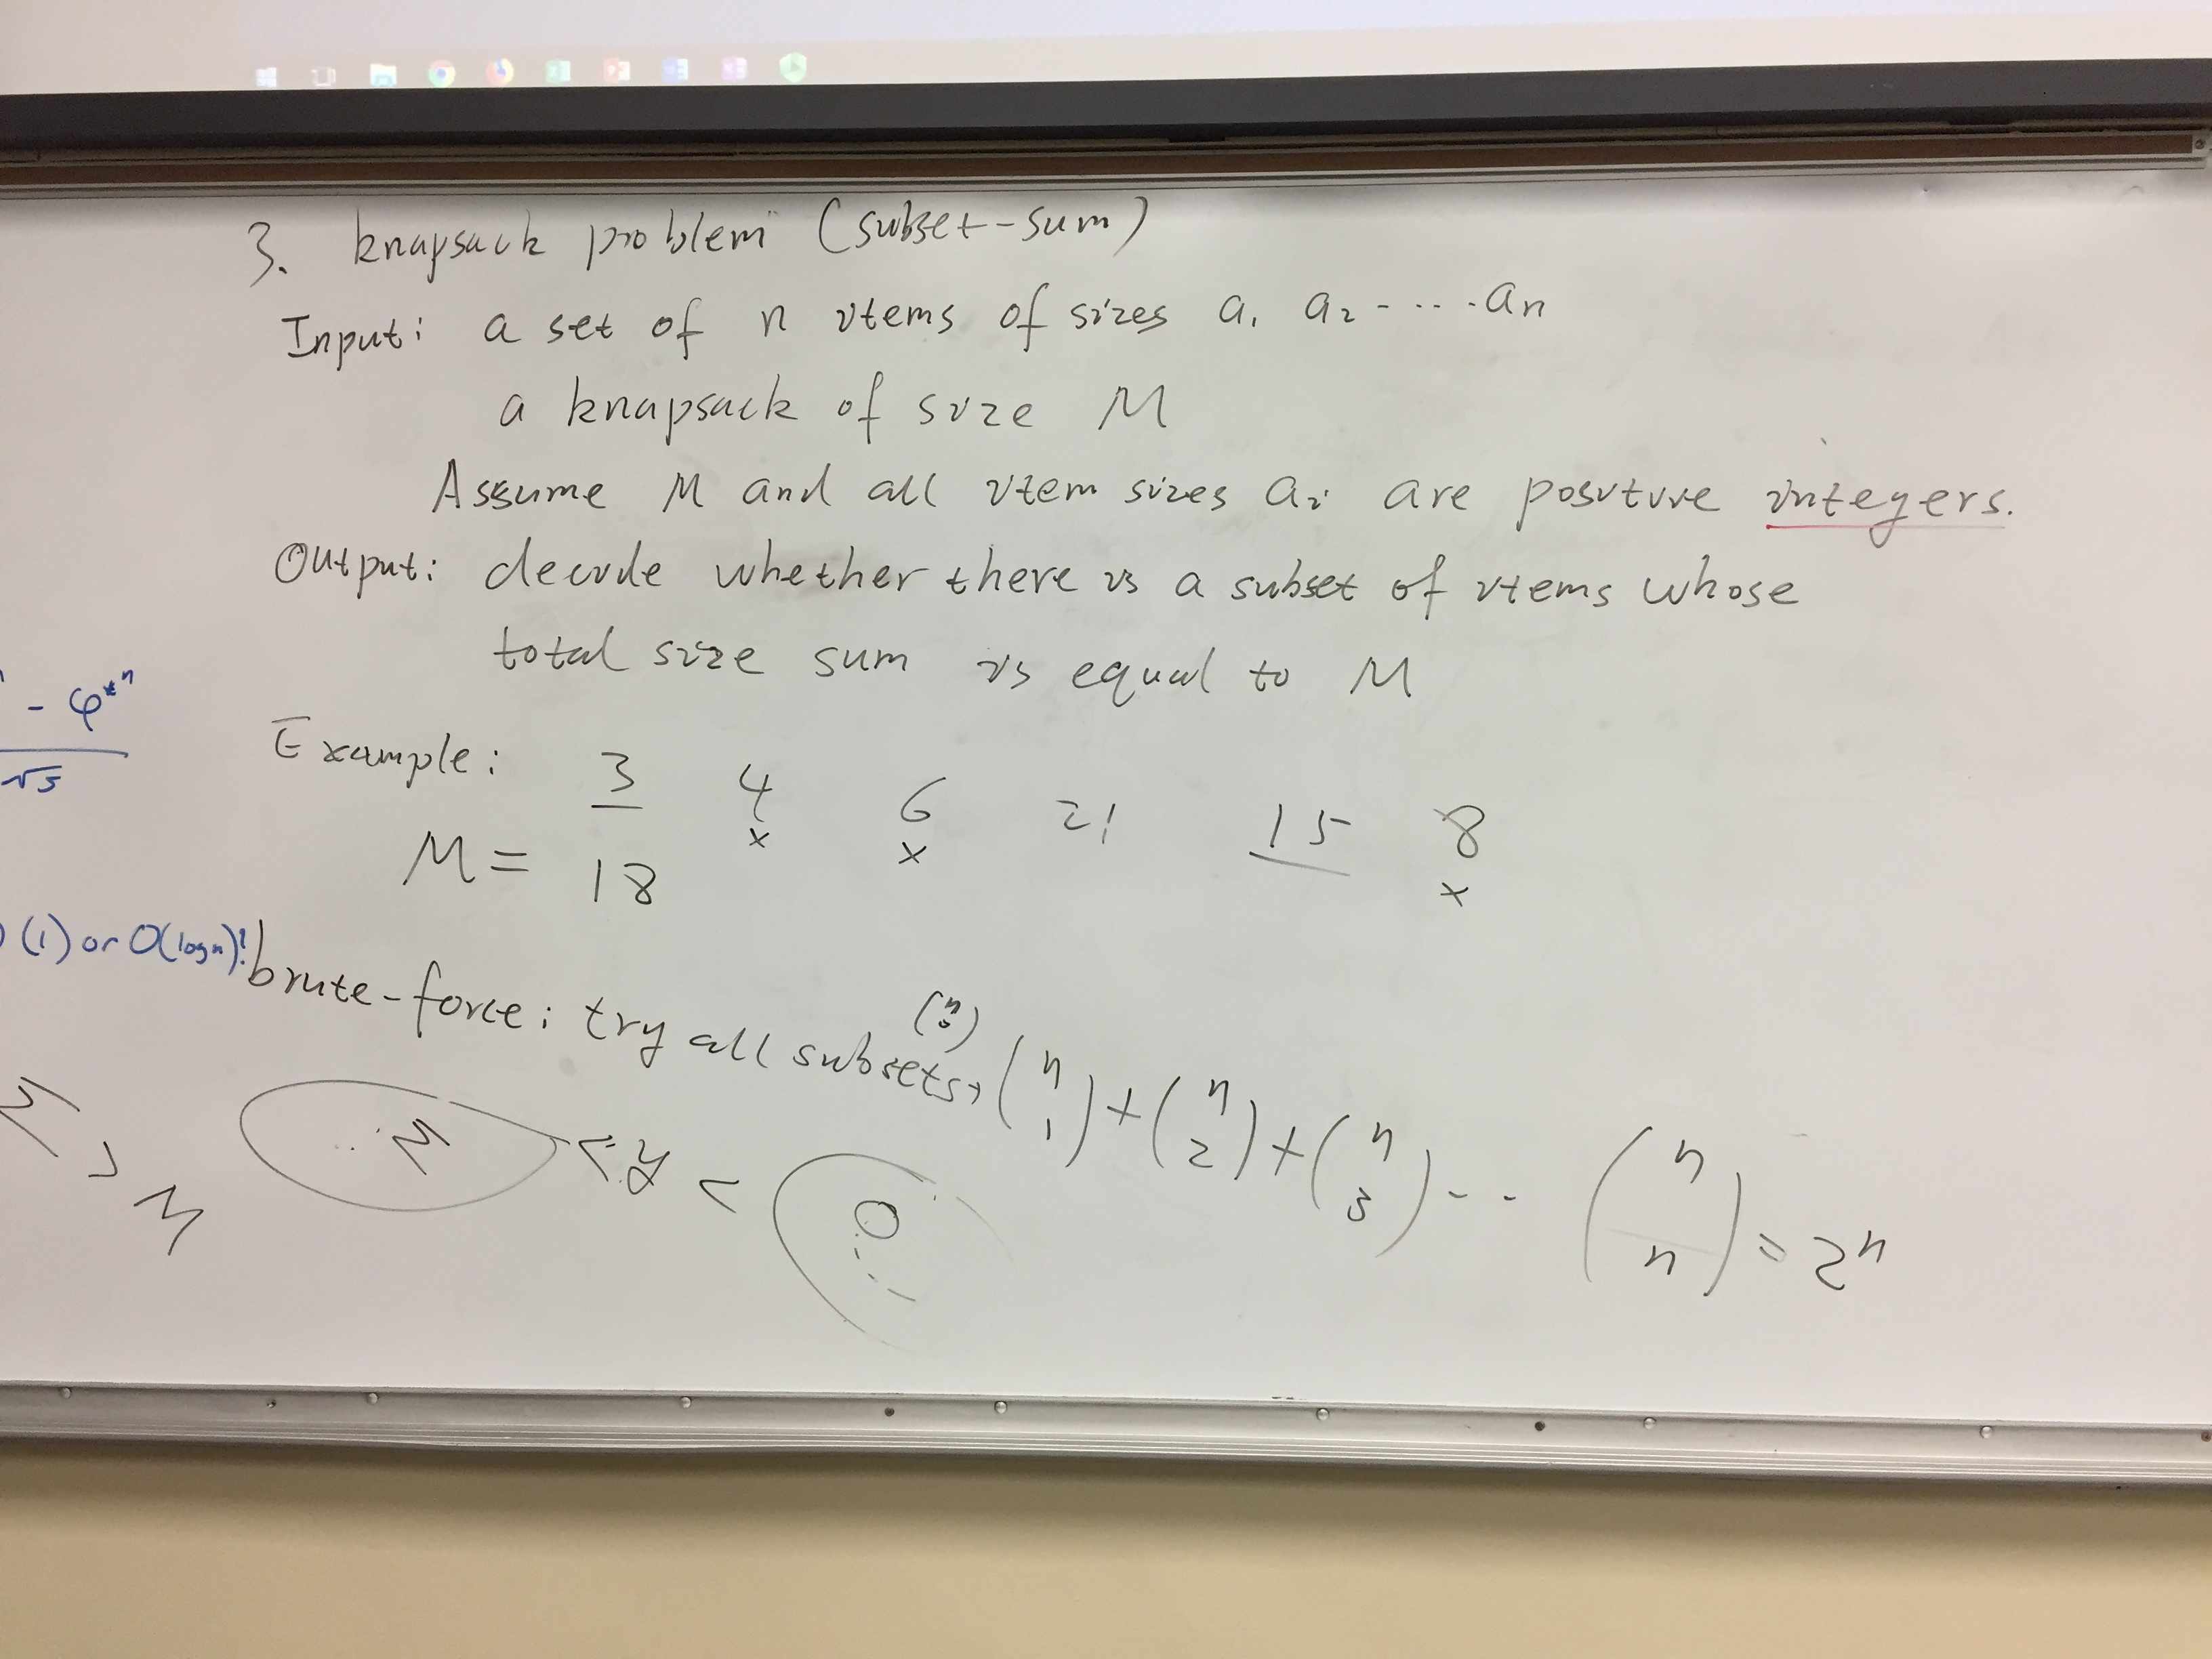 3. knapsack problem (subset-sum)
Input: a set of n items of sizes a₁ a₂ - ... aₙ
a knapsack of size M
Assume M and all item sizes aᵢ are positive integers.
Output: decide whether there is a subset of items whose
total size sum is equal to M
- φ*ⁿ
√5
Example: 3 4 6 21 15 8
x x x
M = 18
(1) or O(log n)!
brute-force: try all subsets, (n 0) (n 1) + (n 2) + (n 3) - - (n n) = 2ⁿ
M
0
M